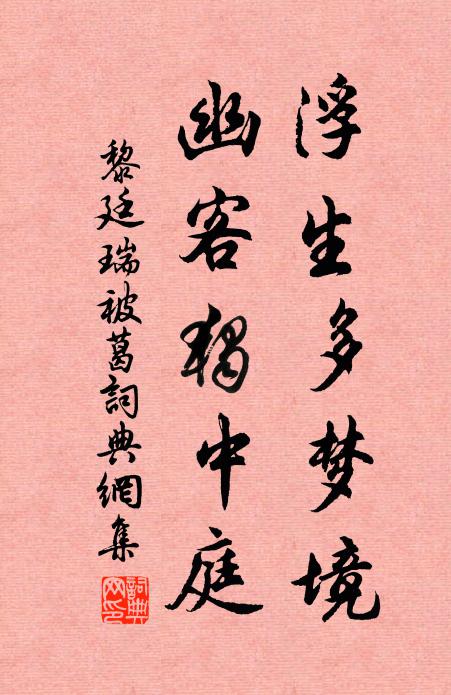 浮生多梦境
幽客独中庭
黎廷瑞被葛詞典網集
詞典网印